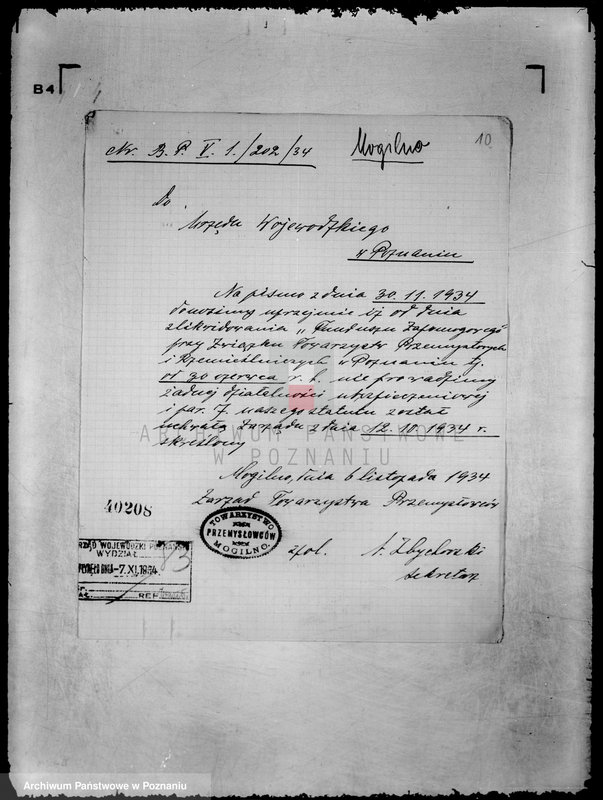 B4
10
Nr. B. P. V. 1./202/34 Mogilno
Do
Urzędu Wojewódzkiego
w Poznaniu
Na pismo z dnia 30.11.1934
donosimy uprzejmie iż od dnia
zlikwidowania „Funduszu Zapomogowego"
przy Związku Towarzystw Przemysłowych
i Rzemieślniczych w Poznaniu tj.
od 30 czerwca r. b. nie prowadzimy
żadnej działalności ubezpieczeniowej
i par. 7. naszego statutu został
uchwałą Zarządu z dnia 12.10.1934 r.
skreślony
ARCHIWUM PAŃSTWOWE
W POZNANIU
Mogilno, dnia 6 listopada 1934
Zarząd Towarzystwa Przemysłowców
40208
TOWARZYSTWO
PRZEMYSŁOWCÓW
MOGILNO.
URZĄD WOJEWÓDZKI POZNAŃSKI
WYDZIAŁ
-7.XI.1934
83
REF
sekretarz
Archiwum Państwowe w Poznaniu